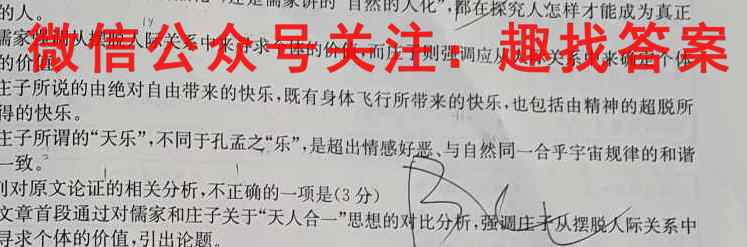 还是儒家讲的“自然的人化”，都在探究人怎样才能成为真正
的人。
儒家强调从摆脱人际关系中来寻求个体的价值，而庄子则强调应从人际关系中来确定个体
微信公众号关注：趣找答案
的价值。
庄子所说的由绝对自由带来的快乐，既有身体飞行所带来的快乐，也包括由精神的超脱所
得的快乐。
庄子所谓的“天乐”，不同于孔孟之“乐”，是超出情感好恶、与自然同一合乎宇宙规律的和谐
一致。
列对原文论证的相关分析，不正确的一项是(3分)
文章首段通过对儒家和庄子关于“天人合一”思想的对比分析，强调庄子从摆脱人际关系中
寻求个体的价值，引出论题。